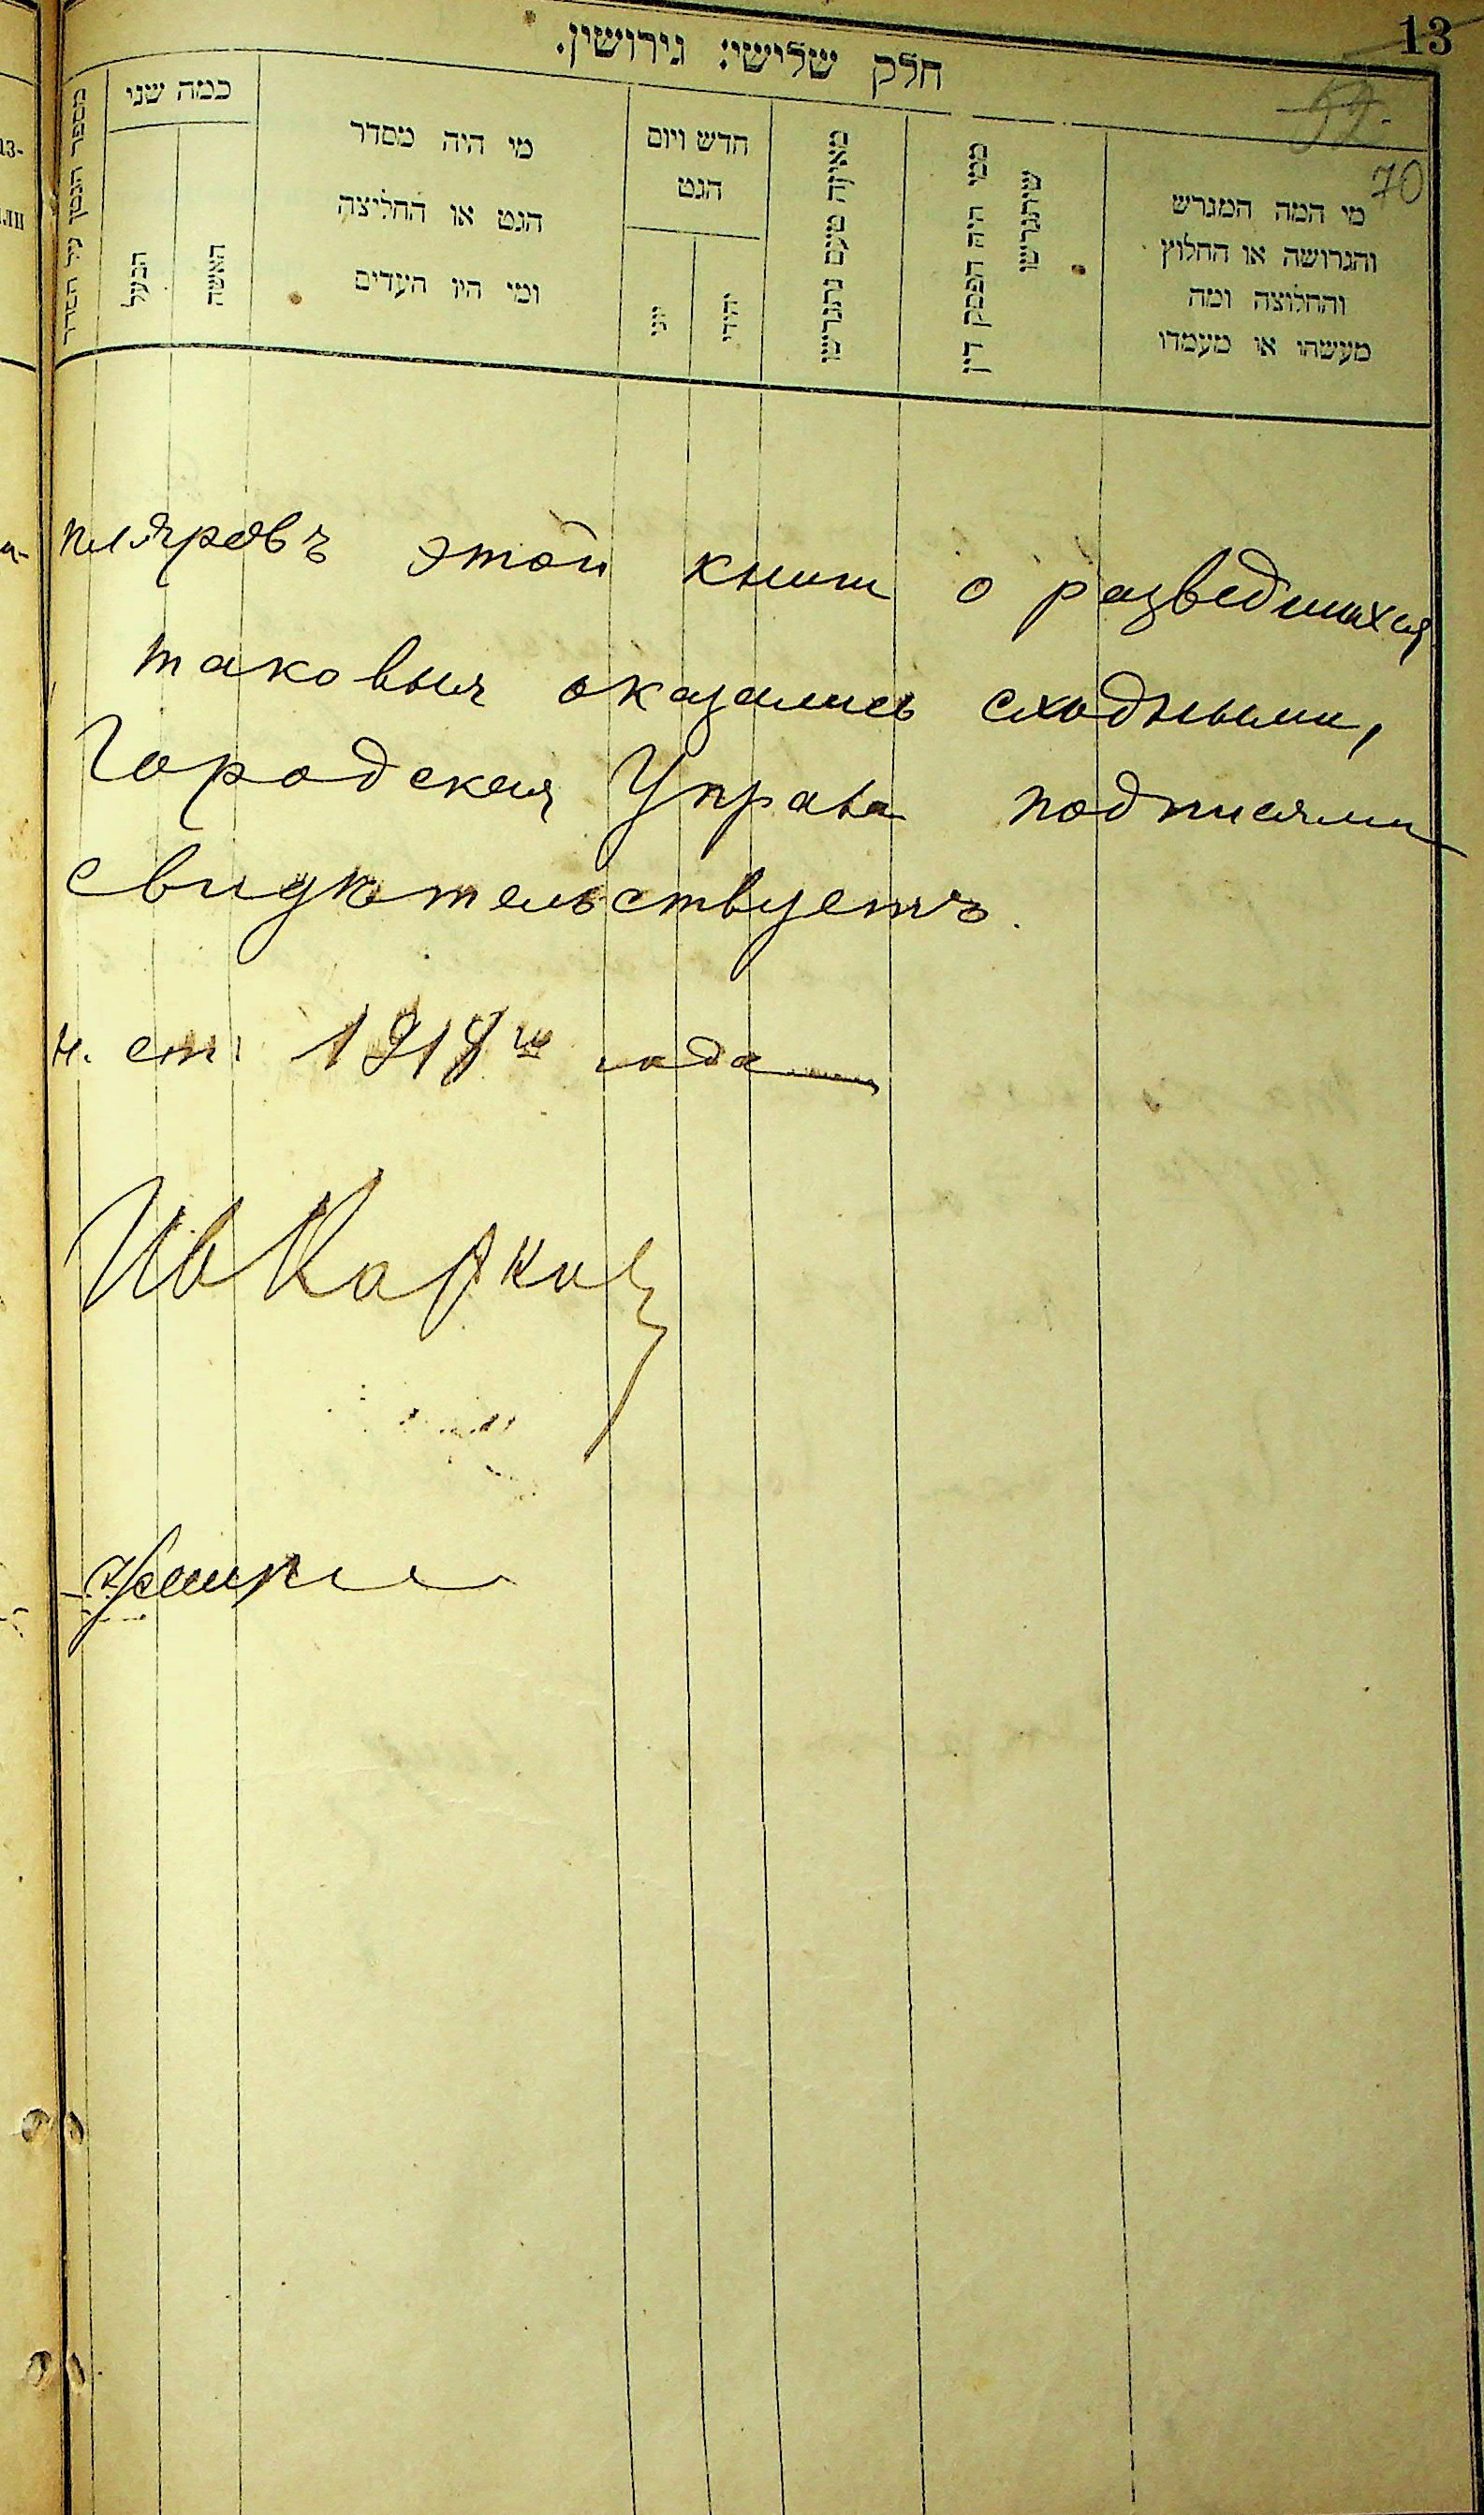 13
חלק שלישי: גירושין.
52.
70
מספר הנמן על הסדר
כמה שני
הבעל
האשה
מי היה מסדר
הגט או החליצה
ומי היו העדים
חדש ויום
הגט
יוני
יהודי
מאיזה טעם נתגרשו
ממי היה הפסק דין
שיתגרשו
מי המה המגרש
והגרושה או החלוץ
והחלוצה ומה
מעשהו או מעמדו
пляровъ этой книги о разведшихся
таковыя оказались сходными,
Городская Управа подписями
свидѣтельствуетъ.
н. ст. 1918го года